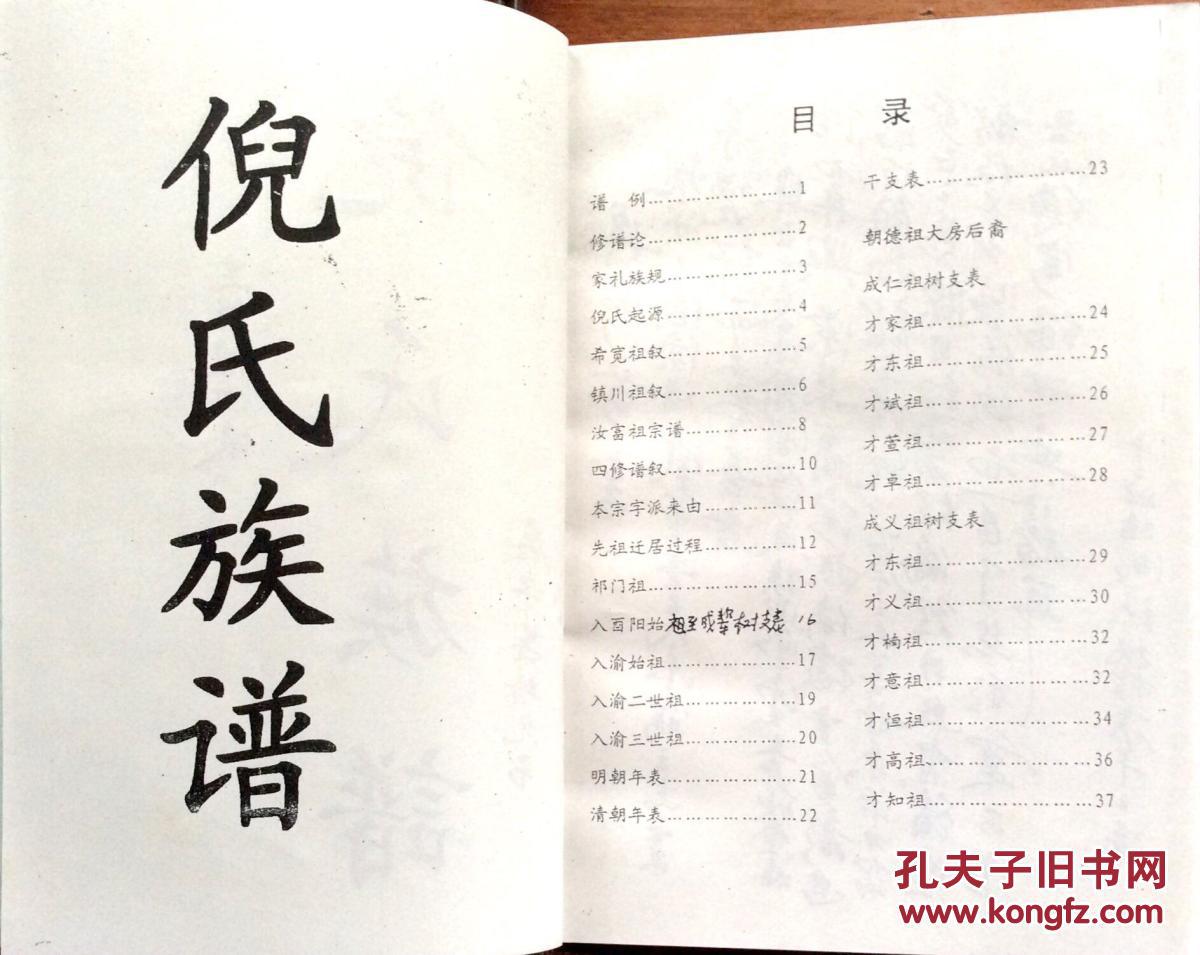 倪氏族谱
目 录
谱 例…………………1
修谱论…………………2
家礼族规………………3
倪氏起源………………4
希宽祖叙………………5
镇川祖叙………………6
汝富祖宗谱……………8
四修谱叙………………10
本宗字派来由…………11
先祖迁居过程…………12
祁门祖…………………15
入酉阳始祖至成辈树支表 16
入渝始祖………………17
入渝二世祖……………19
入渝三世祖……………20
明朝年表………………21
清朝年表………………22
干支表…………………23
朝德祖大房后裔
成仁祖树支表
才家祖…………………24
才东祖…………………25
才斌祖…………………26
才萱祖…………………27
才卓祖…………………28
成义祖树支表
才东祖…………………29
才义祖…………………30
才楠祖…………………32
才意祖…………………32
才恒祖…………………34
才高祖…………………36
才知祖…………………37
孔夫子旧书网
www.kongfz.com